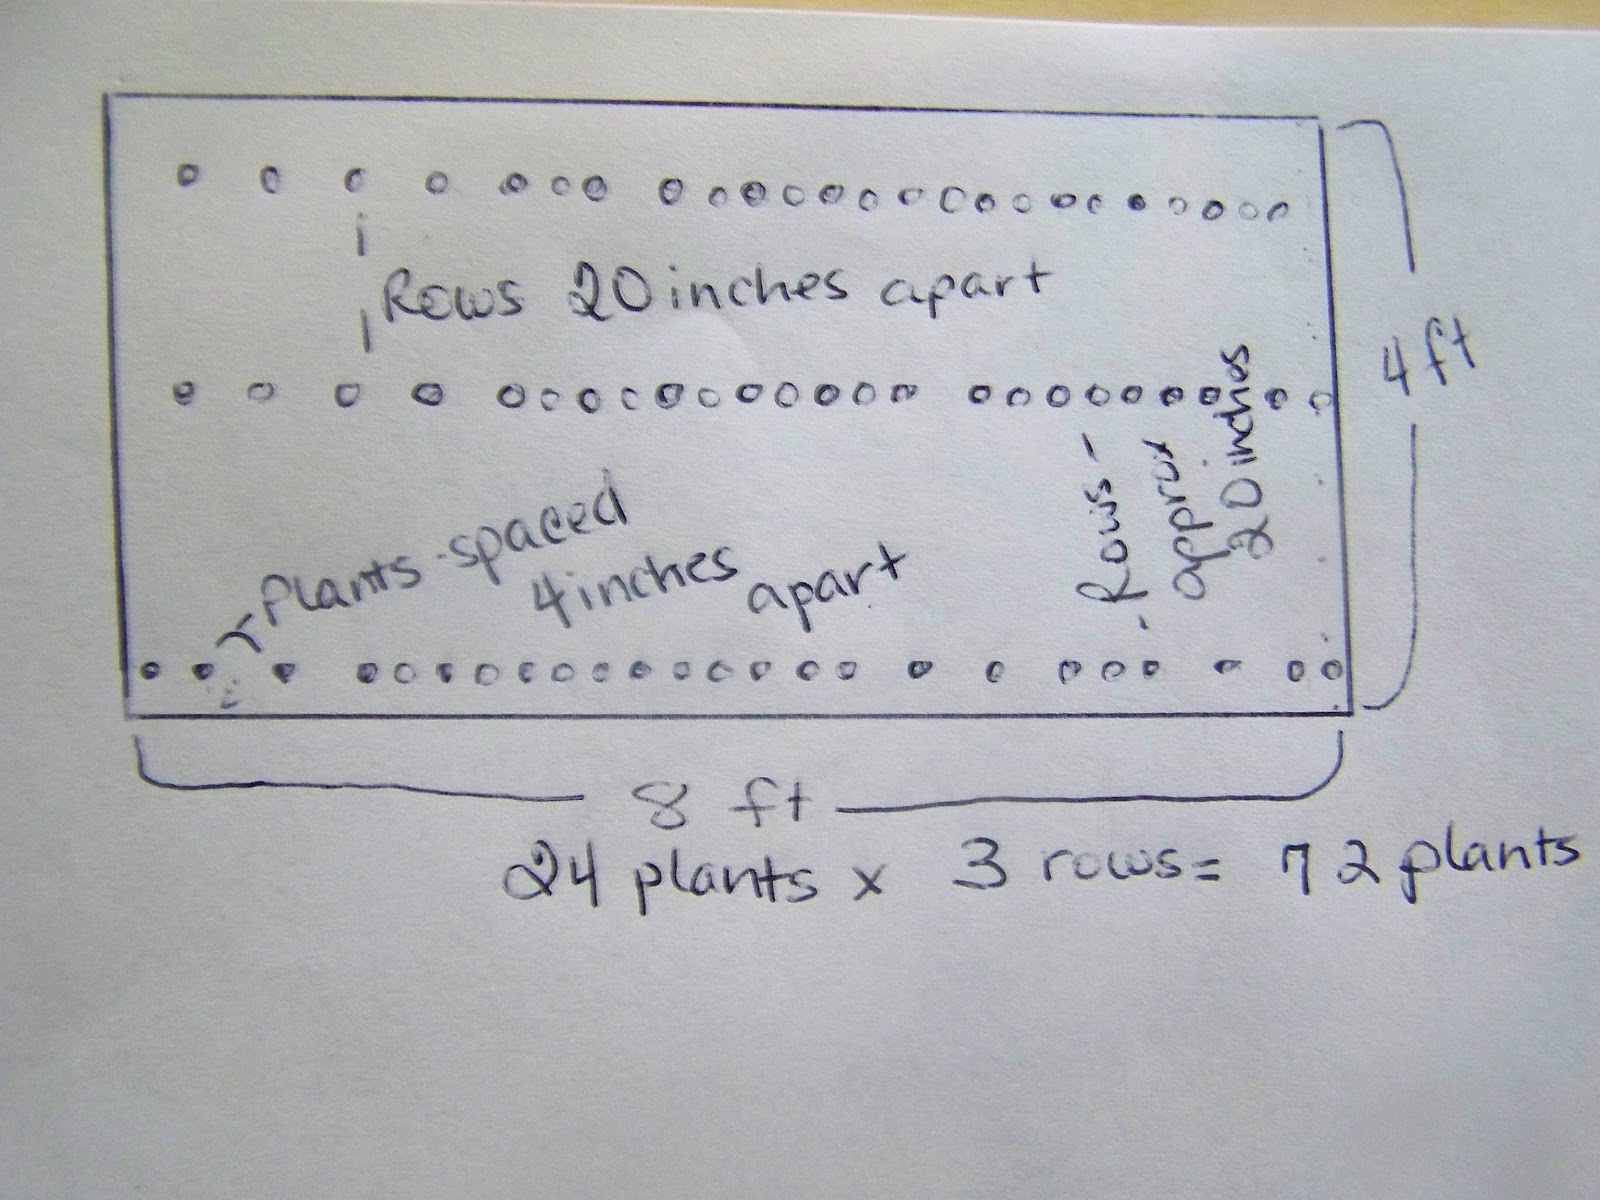 Rows 20 inches apart
4 ft
Rows -
approx
20 inches
Plants spaced
4 inches
apart
8 ft
24 plants x 3 rows = 72 plants